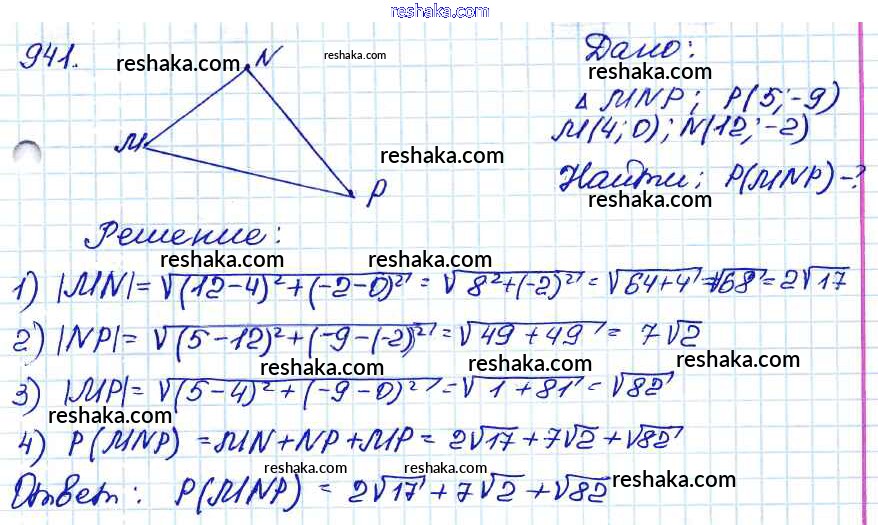 reshaka.com
941.
reshaka.com
N
reshaka.com
Дано:
reshaka.com
Δ MNP; P(5;-9)
M(4;0); N(12;-2)
M
reshaka.com
Найти: P(MNP)-?
P
reshaka.com
Решение:
reshaka.com
reshaka.com
1) |MN|=√((12-4)²+(-2-0)²)=√(8²+(-2)²)=√(64+4)=√68=2√17
reshaka.com
2) |NP|=√((5-12)²+(-9-(-2))²)=√(49+49)=7√2
reshaka.com
reshaka.com
3) |MP|=√((5-4)²+(-9-0)²)=√(1+81)=√82
reshaka.com
4) P(MNP)=MN+NP+MP=2√17+7√2+√82
reshaka.com
reshaka.com
reshaka.com
Ответ: P(MNP)=2√17+7√2+√82
reshaka.com